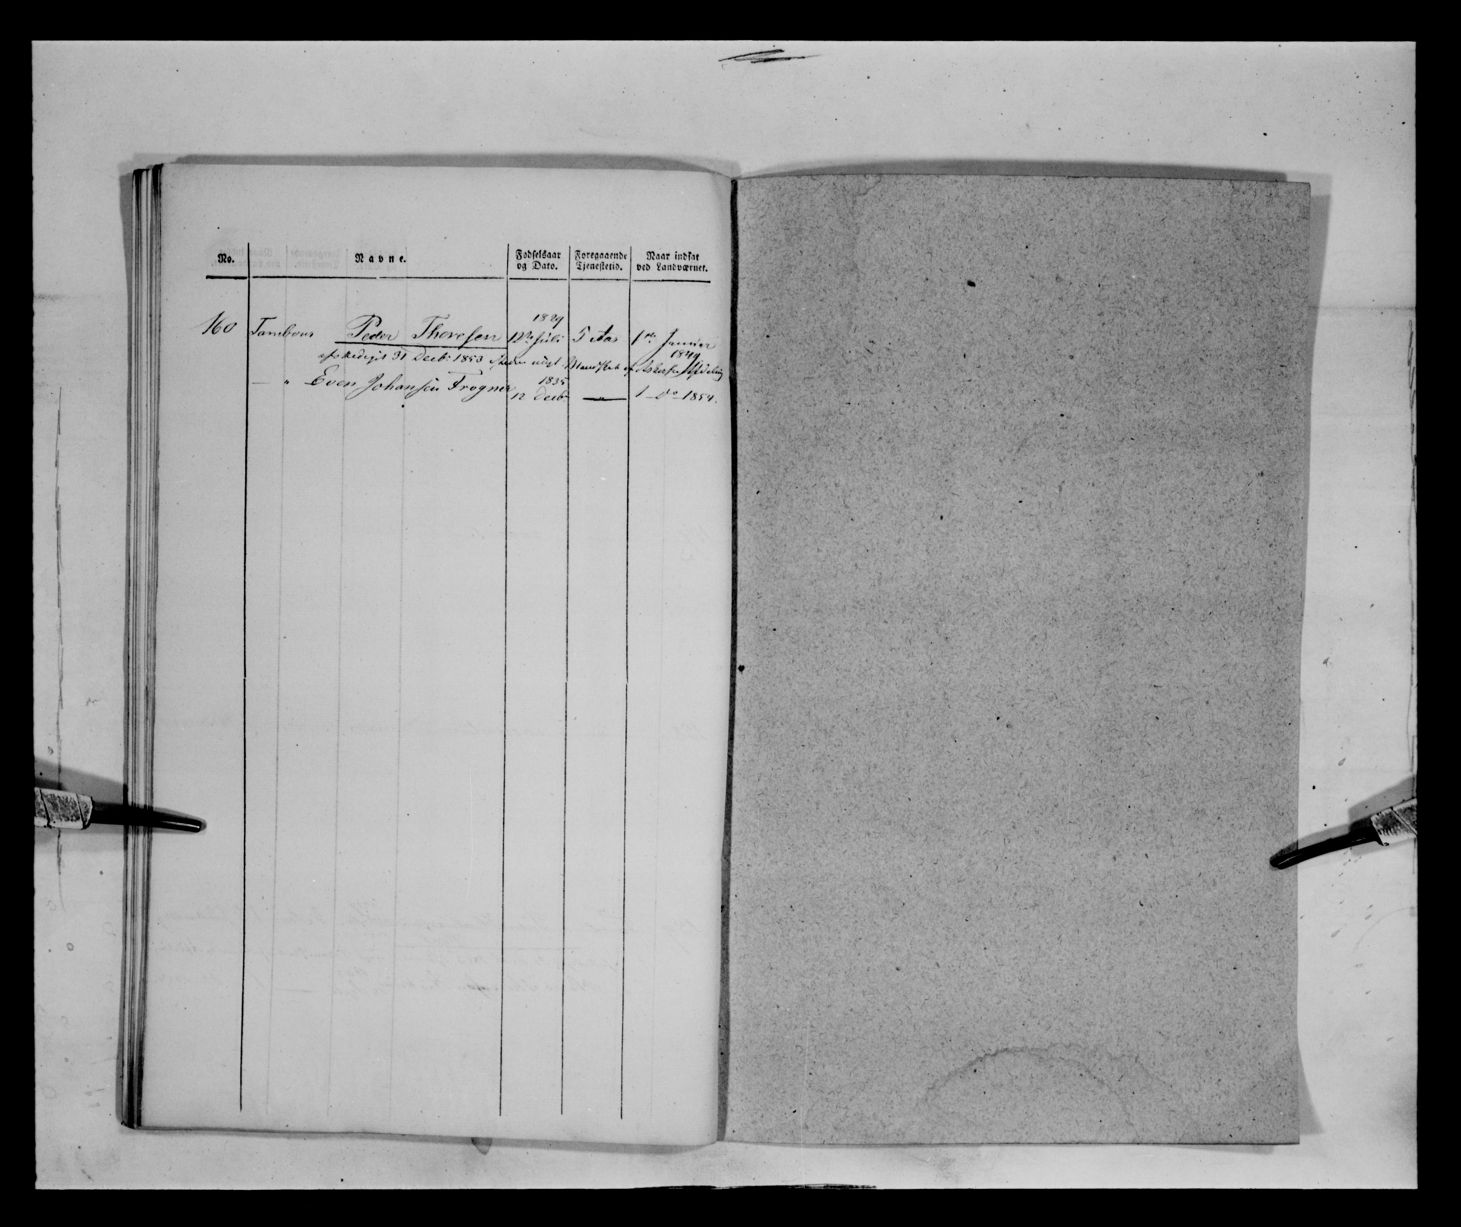 No. Navne. Fødselsaar og Dato. Foregaaende Tjenestetid. Naar indsat ved Landværnet.
160 Tambour Peder Thoresen 1829 12te Juli 5 Aar 1ste Januar 1849
afskediget 31 Decbr 1853 Mandskab af Afdeling
— " Even Johansen Frogner 1835 12 Decbr — 1 — do — 1854.